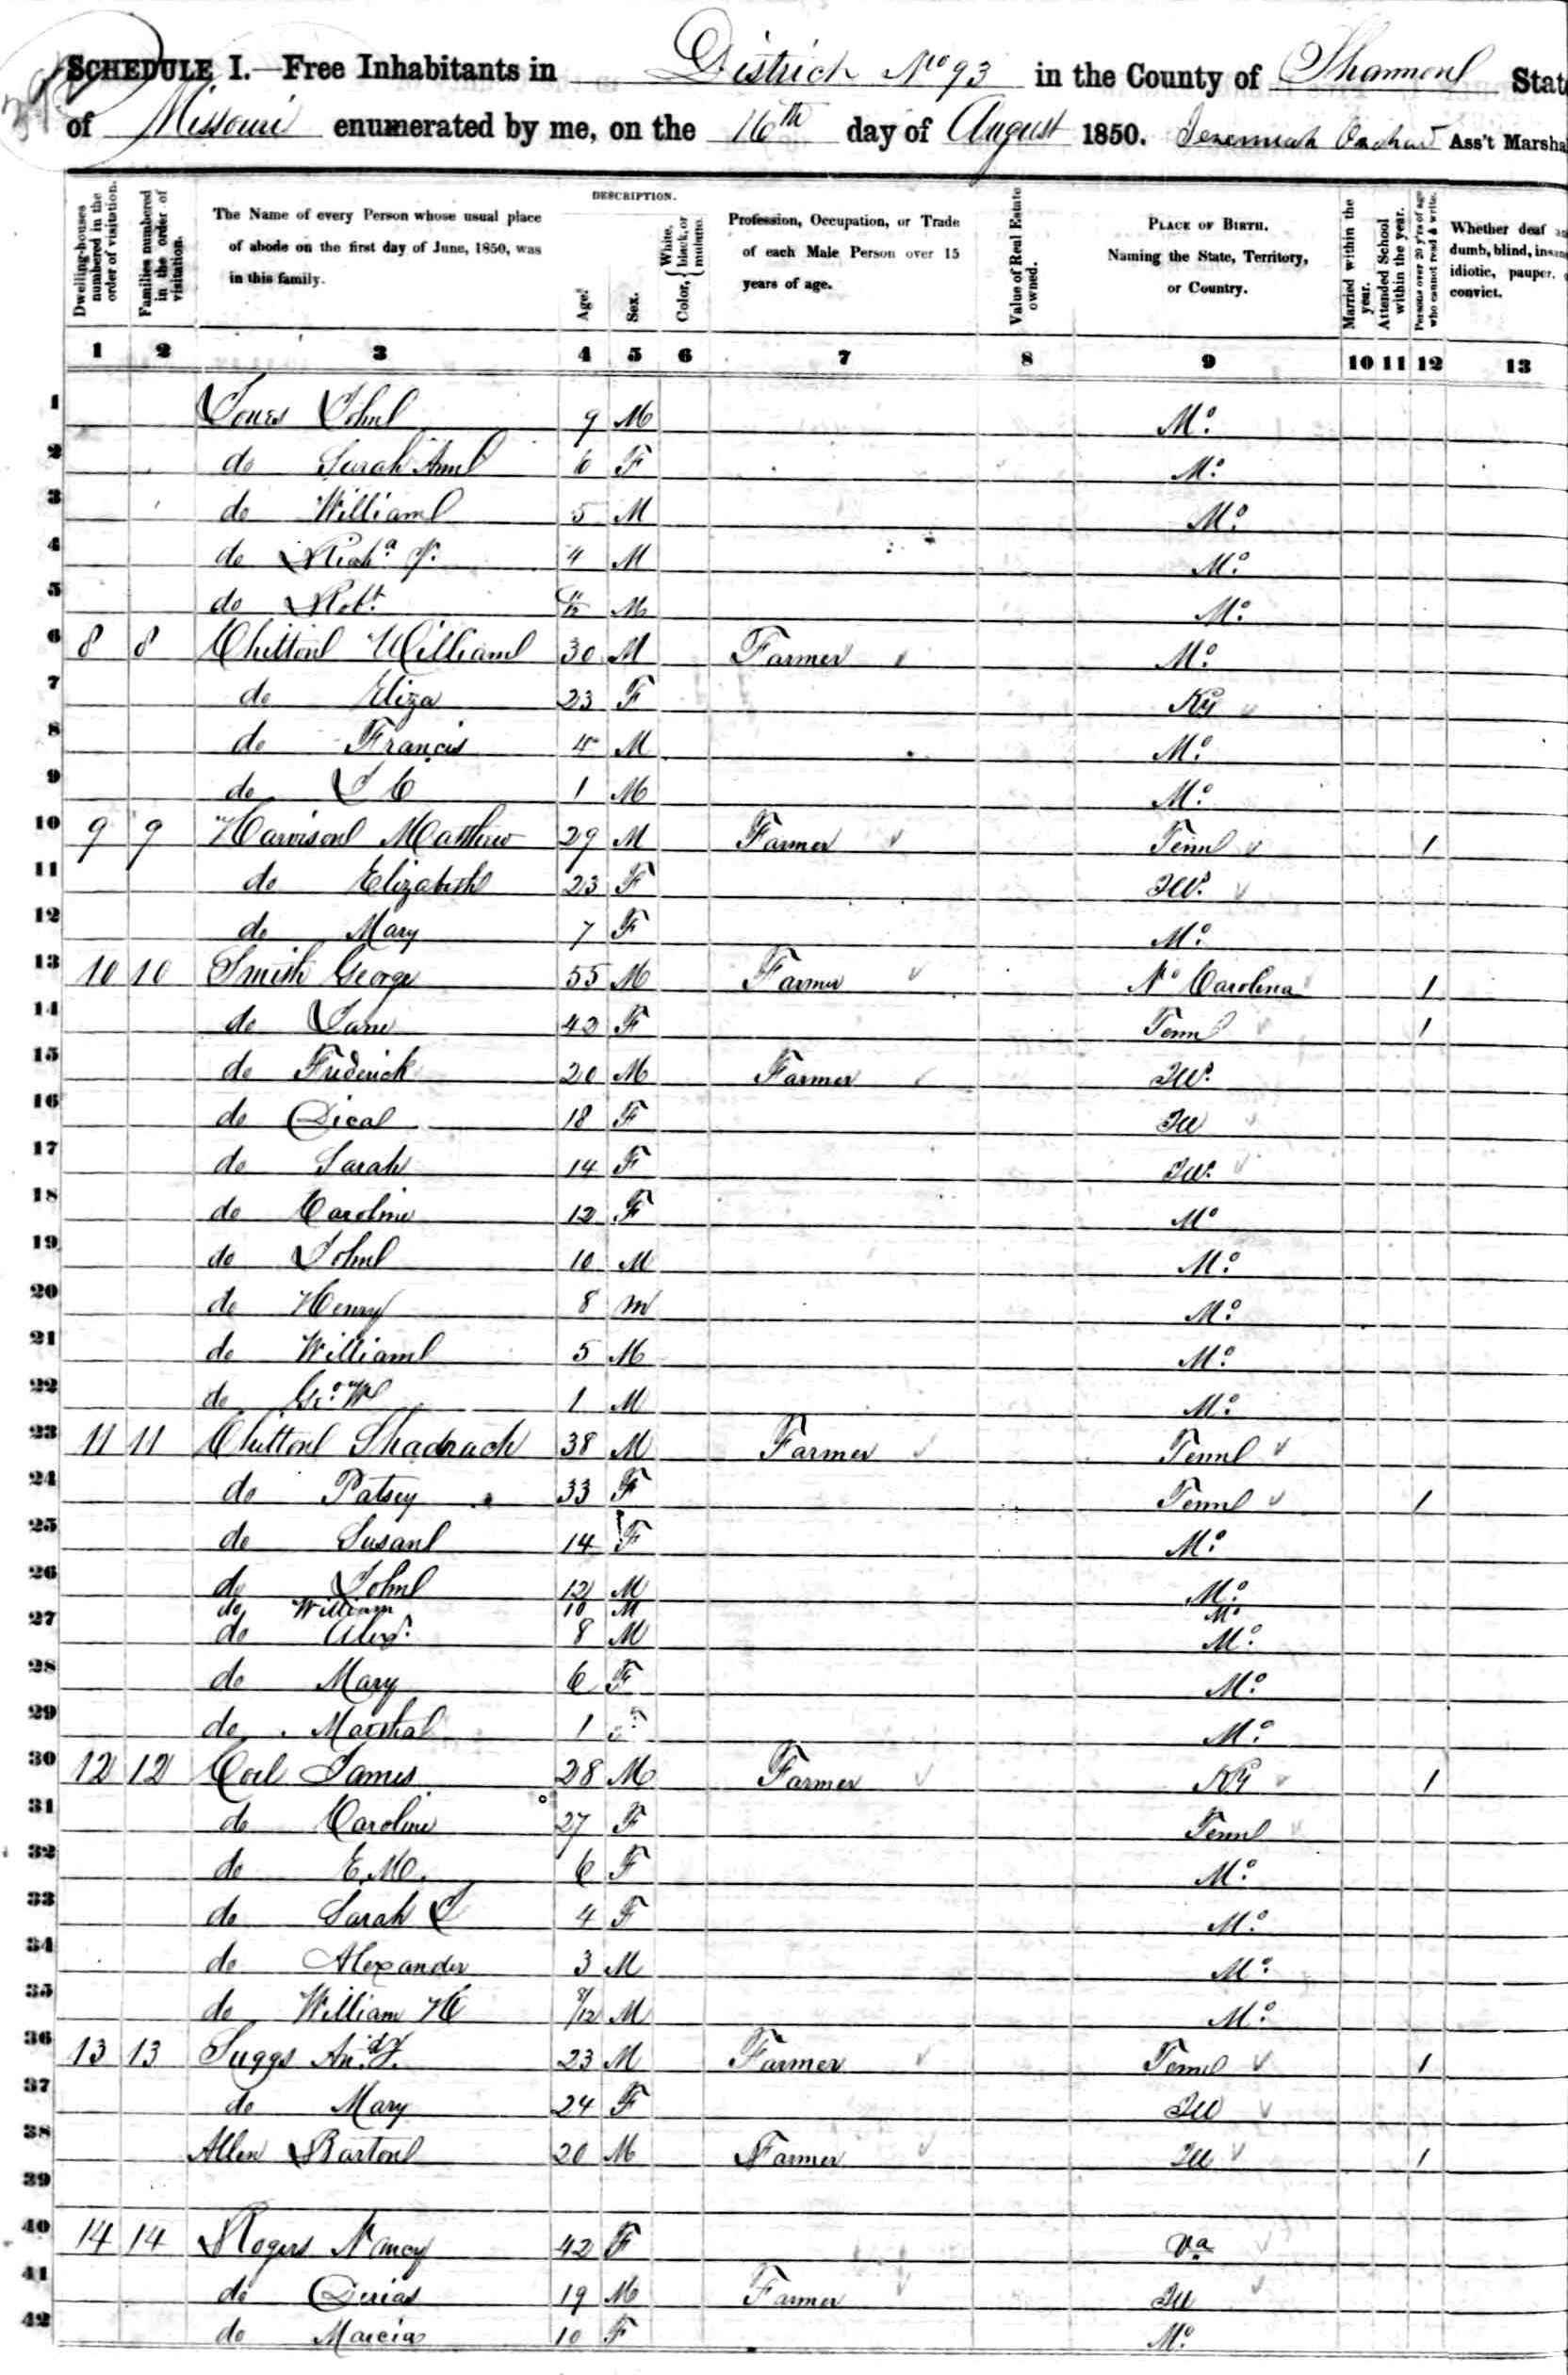 SCHEDULE I.—Free Inhabitants in District No 93 in the County of Shannon Stat
of Missouri enumerated by me, on the 16th day of August 1850. Jeremiah Orchard Ass't Marsha
Dwelling-houses numbered in the order of visitation.
Families numbered in the order of visitation.
The Name of every Person whose usual place of abode on the first day of June, 1850, was in this family.
DESCRIPTION.
Age.
Sex.
Color, { White, black, or mulatto.
Profession, Occupation, or Trade of each Male Person over 15 years of age.
Value of Real Estate owned.
PLACE OF BIRTH. Naming the State, Territory, or Country.
Married within the year.
Attended School within the year.
Persons over 20 y'rs of age who cannot read & write.
Whether deaf and dumb, blind, insane, idiotic, pauper, convict.
1 2 3 4 5 6 7 8 9 10 11 12 13
1 Jones John 9 M Mo.
2 do Sarah Ann 6 F Mo.
3 do William 5 M Mo.
4 do 4 M Mo.
5 do Robt. M Mo.
6 8 8 Chilton William 30 M Farmer Mo.
7 do Eliza 23 F Ky
8 do Francis 4 M Mo.
9 do J C 1 M Mo.
10 9 9 Harrison Matthew 29 M Farmer Tenn 1
11 do Elizabeth 23 F Ills.
12 do Mary 7 F Mo.
13 10 10 Smith George 55 M Farmer No Carolina 1
14 do Jane 42 F Tenn 1
15 do Frederick 20 M Farmer Ills.
16 do Dical 18 F Ill
17 do Sarah 14 F Ills.
18 do Caroline 12 F Mo
19 do John 10 M Mo.
20 do Henry 8 M Mo.
21 do William 5 M Mo.
22 do Geo. W 1 M Mo.
23 11 11 Chilton Shadrach 38 M Farmer Tenn
24 do Patsey 33 F Tenn 1
25 do Susan 14 F Mo.
26 do John 12 M Mo.
do William 10 M Mo.
27 do Alexr. 8 M Mo.
28 do Mary 6 F Mo.
29 do Marshal 1 Mo.
30 12 12 Coil James 28 M Farmer Ky 1
31 do Caroline 27 F Tenn
32 do E. M. 6 F Mo.
33 do Sarah J 4 F Mo.
34 do Alexander 3 M Mo.
35 do William H 8/12 M Mo.
36 13 13 Suggs 23 M Farmer Tenn 1
37 do Mary 24 F Ill
38 Allen Barton 20 M Farmer Ill 1
39
40 14 14 Rogers Nancy 42 F Va
41 do 19 M Farmer Ill
42 do Marcia 10 F Mo.